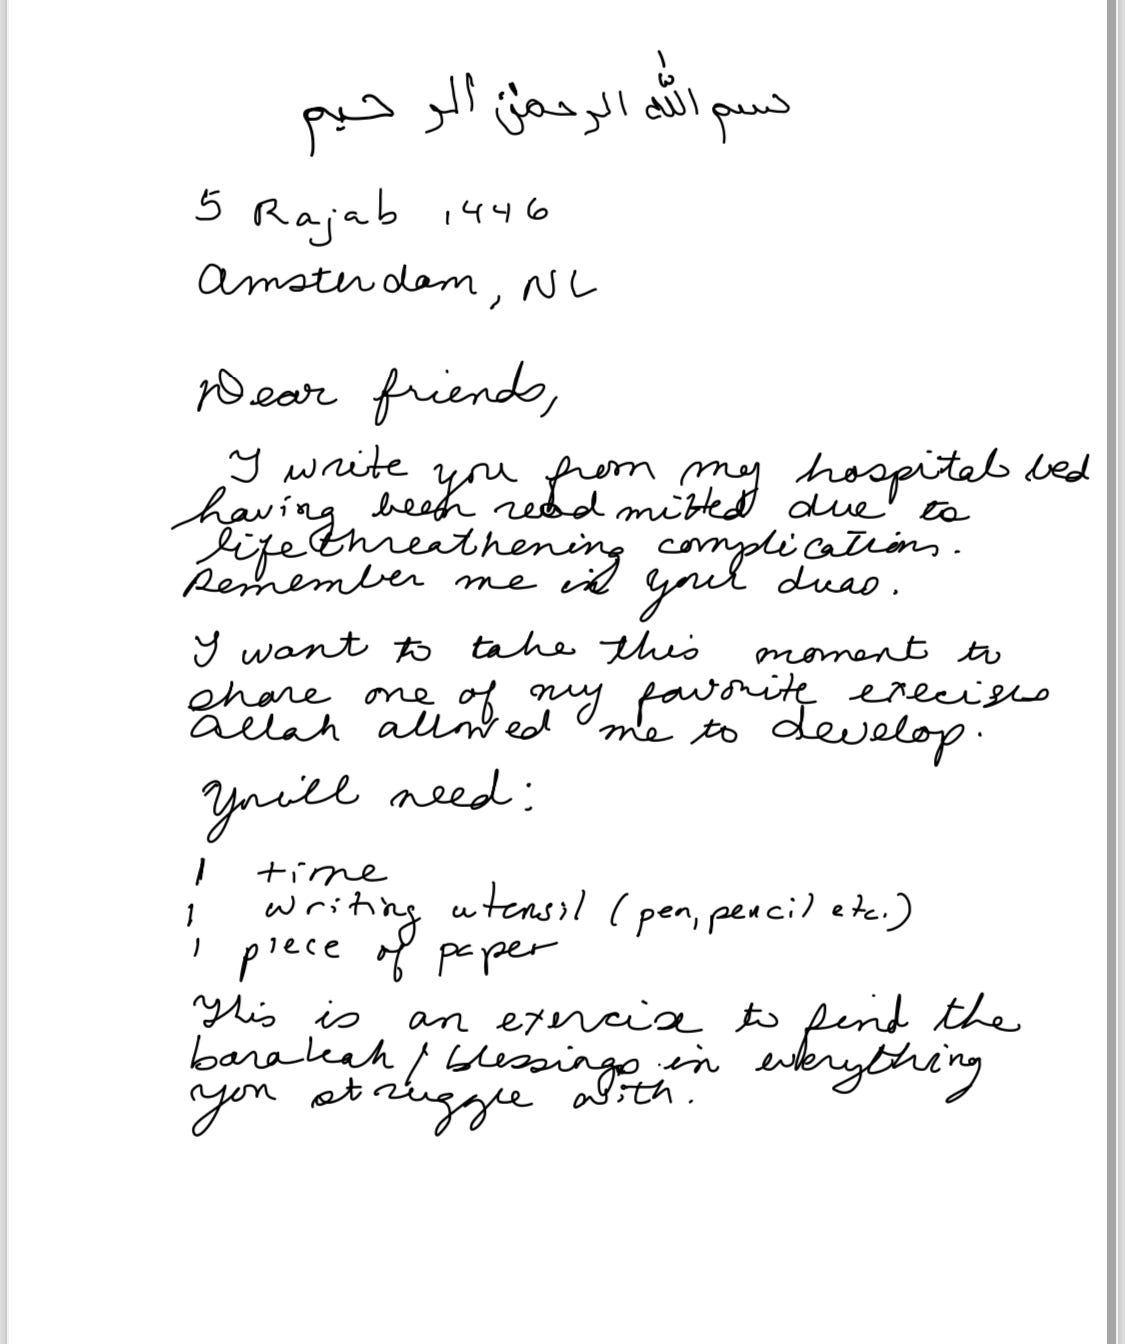 بسم الله الرحمن الرحيم
5 Rajab 1446
Amsterdam, NL
Dear friends,
I write you from my hospital bed
having been readmitted due to
life threathening complications.
Remember me in your duas.
I want to take this moment to
share one of my favorite execises
Allah allowed me to develop.
You'll need:
1 time
1 writing utensil (pen, pencil etc.)
1 piece of paper
This is an exercise to find the
barakah / blessings in everything
you struggle with.